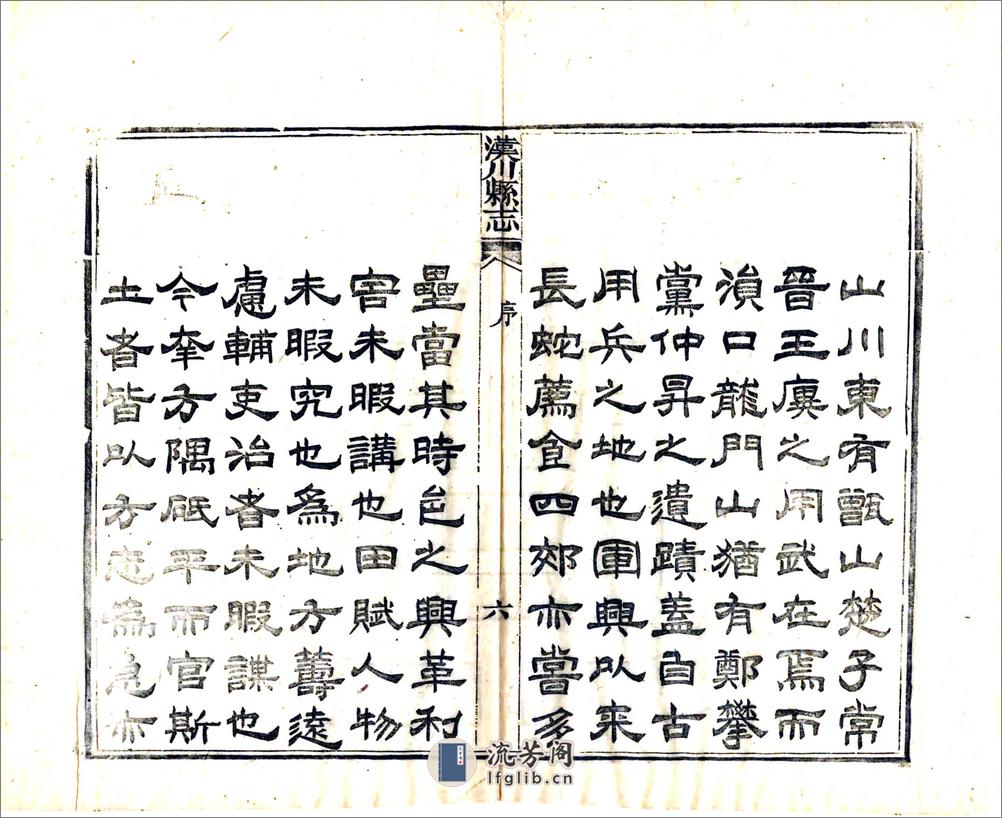 山川東有甑山楚子常
晉王廙之用武在焉而
溳口龍門山猶有鄭攀
黨仲昇之遺蹟蓋自古
用兵之地也軍興以來
長蛇薦食四郊亦嘗多
漢川縣志
序
六
壘當其時邑之興革利
害未暇講也田賦人物
未暇究也為地方籌遠
慮輔吏治者未暇謀也
今幸方隅砥平而官斯
土者皆以方志為急亦
流芳阁
lfglib.cn